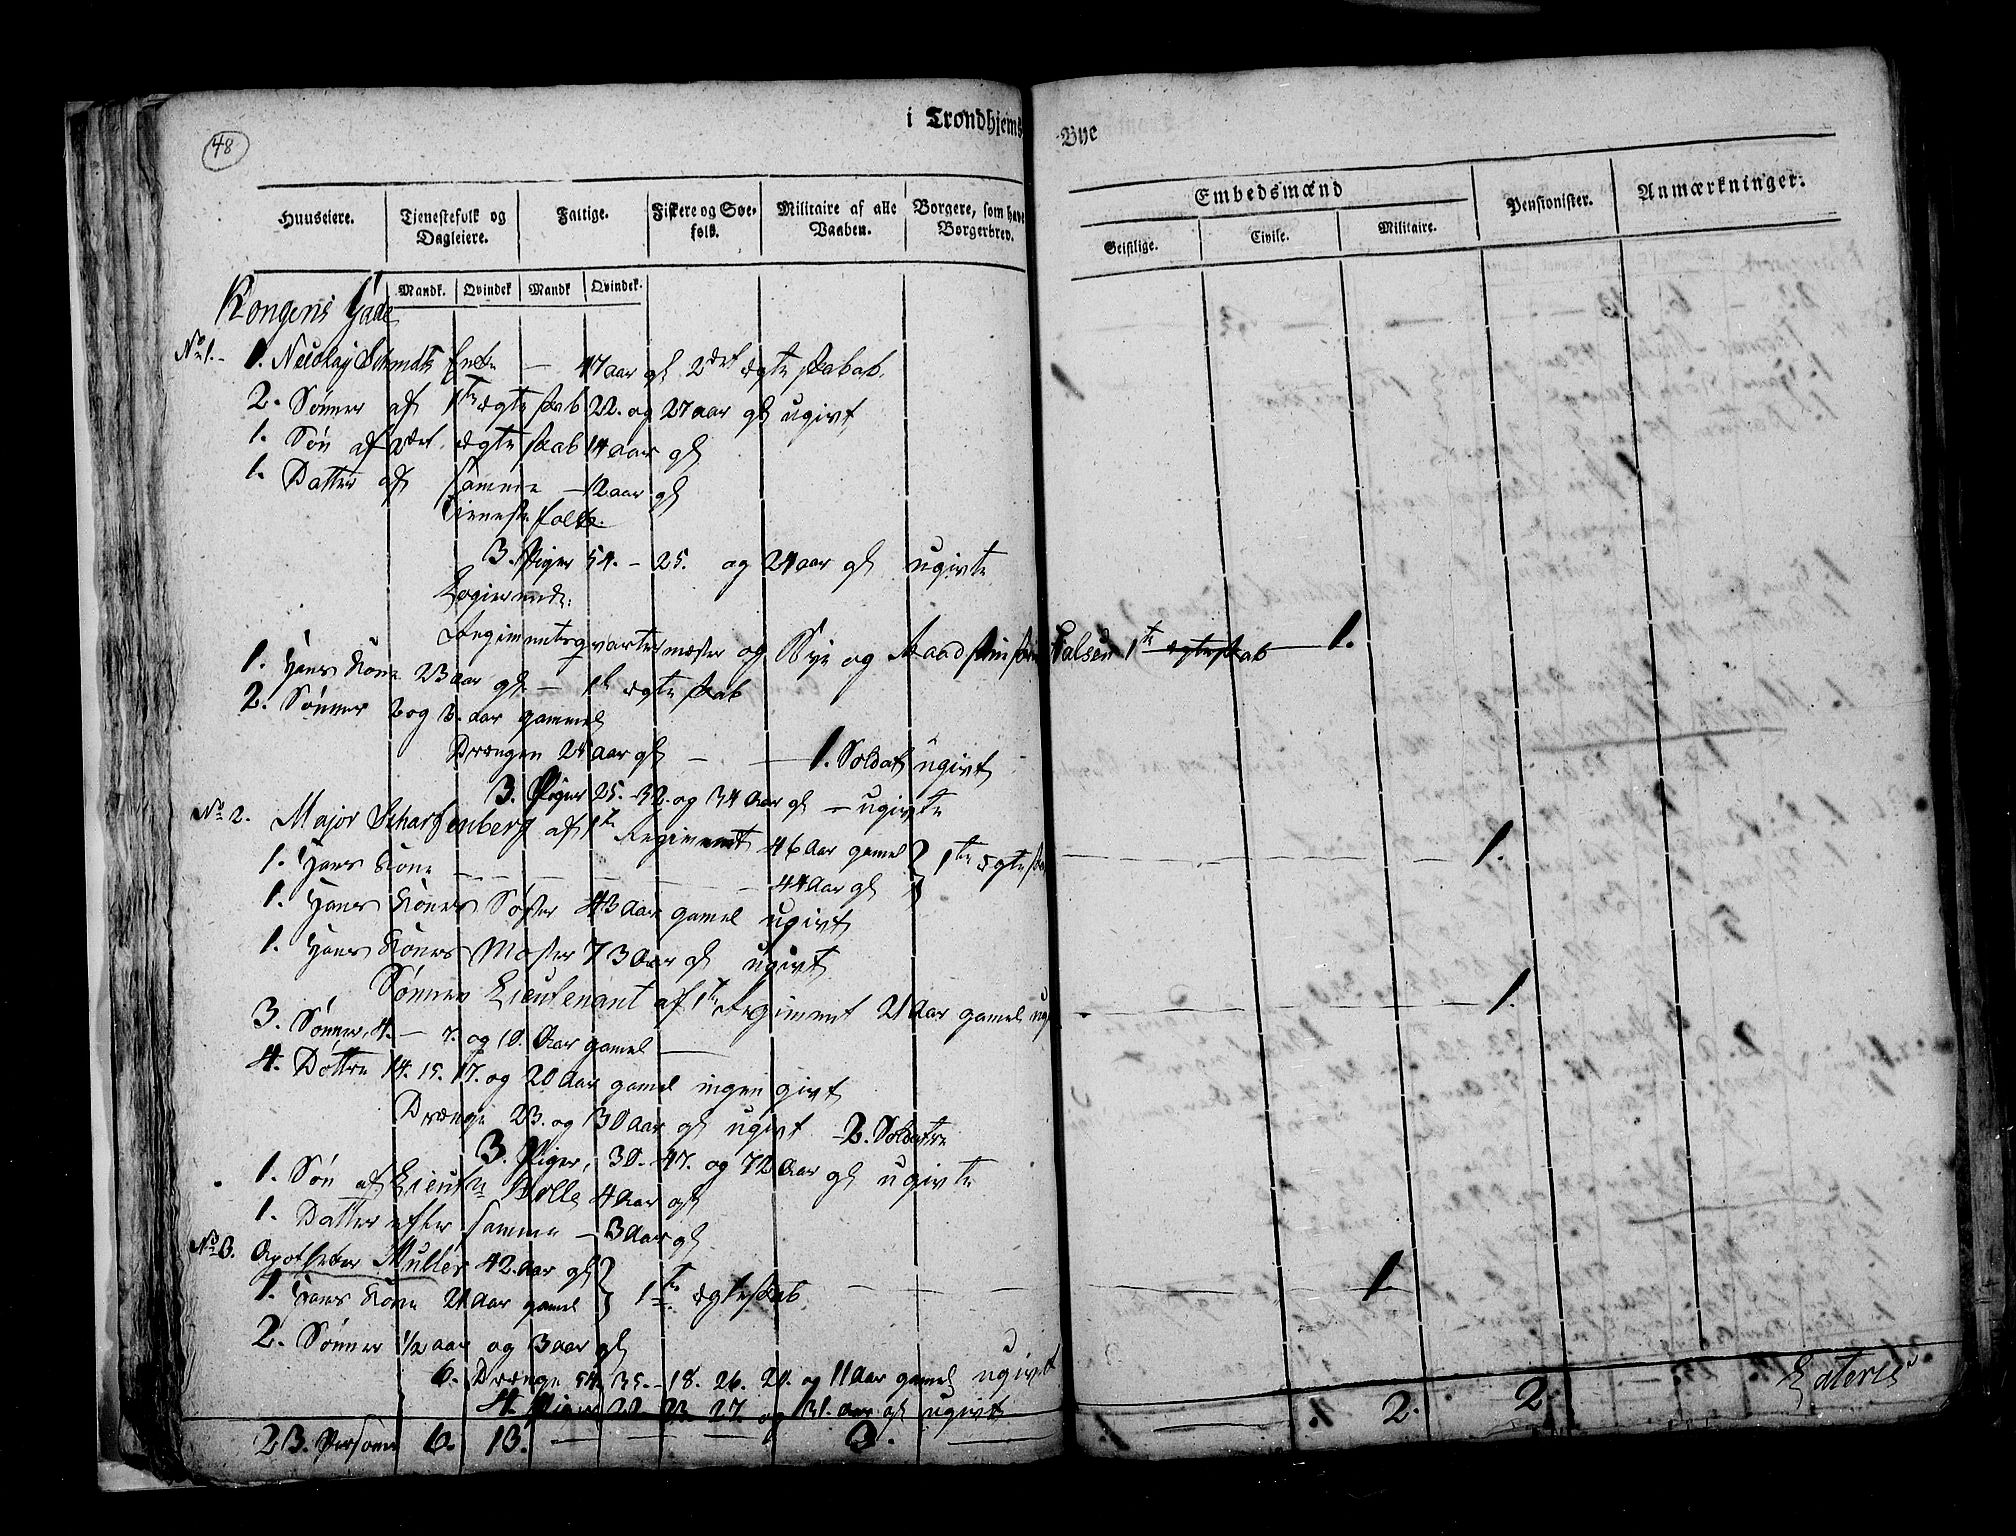 48
i Trondhjems Bye
Huuseiere. Tjenestefolk og Dagleiere. Fattige. Fiskere og Søefolk. Militaire af alle Vaaben. Borgere, som have Borgerbrev. Embedsmænd Pensionister. Anmærkninger.
Geistlige. Civile. Militaire.
Mandk. Qvindek Mandk Qvindek.
Kongens Gade
No 1. 1. Nicolay Schmidts Enke — 47 aar gl 2det ægteskab
2. Sønner af 1te ægteskab 22. og 27 aar gl ugivt
1. Søn af 2det ægteskab 14 aar gl
1. Datter af samme — 12 aar gl
Tieneste folk.
3. Piger 54. — 25. og 24 aar gl ugivte
Logierende:
Regimentsqvartermester og Bye og Raadstue 1te ægteskab 1.
1. Hans Kone 23 aar gl — 1te ægteskab
2. Sønner 2 og 3. aar gammel
Drængen 24 aar gl — 1. Soldat ugivt
3. Piger 25. 32. og 34 Aar gl — ugivte
No 2. Major Scharffenberg af 1te Regiment 46 Aar gamel } 1te ægtesk 1.
1. Hans Kone 44 Aar gl
1. Hans Kones Søster 43 Aar gamel ugivt
1. Hans Kones Moster 73 Aar gl ugivt
Sønnen Lieutenant af 1te Regiment 21 Aar gamel ug 1.
3. Sønner, 4. — 7. og 10. Aar gamel
4. Døttre 14. 15. 17. og 20 Aar gamel ingen givt
Drænge 23. og 30 Aar gl ugivt 2. Soldatre
3. Piger, 30. 47. og 72 Aar gl ugivte
1. Søn af Lieutn Bolle 4 Aar gl
1. Datter efter samme — 3 Aar gl
No 3. Apotheker Muller 42. aar gl } 1te ægteskab 1.
1. Hans Kone 21 Aar gamel
2. Sønner 1/2 aar og 3 aar gl
6. Drænge 54. 35. — 18. 26. 20. og 11 Aar gamel ugivt
4. Piger 22 23. 27. og 31. aar gl ugivt
23. Personer 6. 13. — — — 3. — 2. 2. Lateris